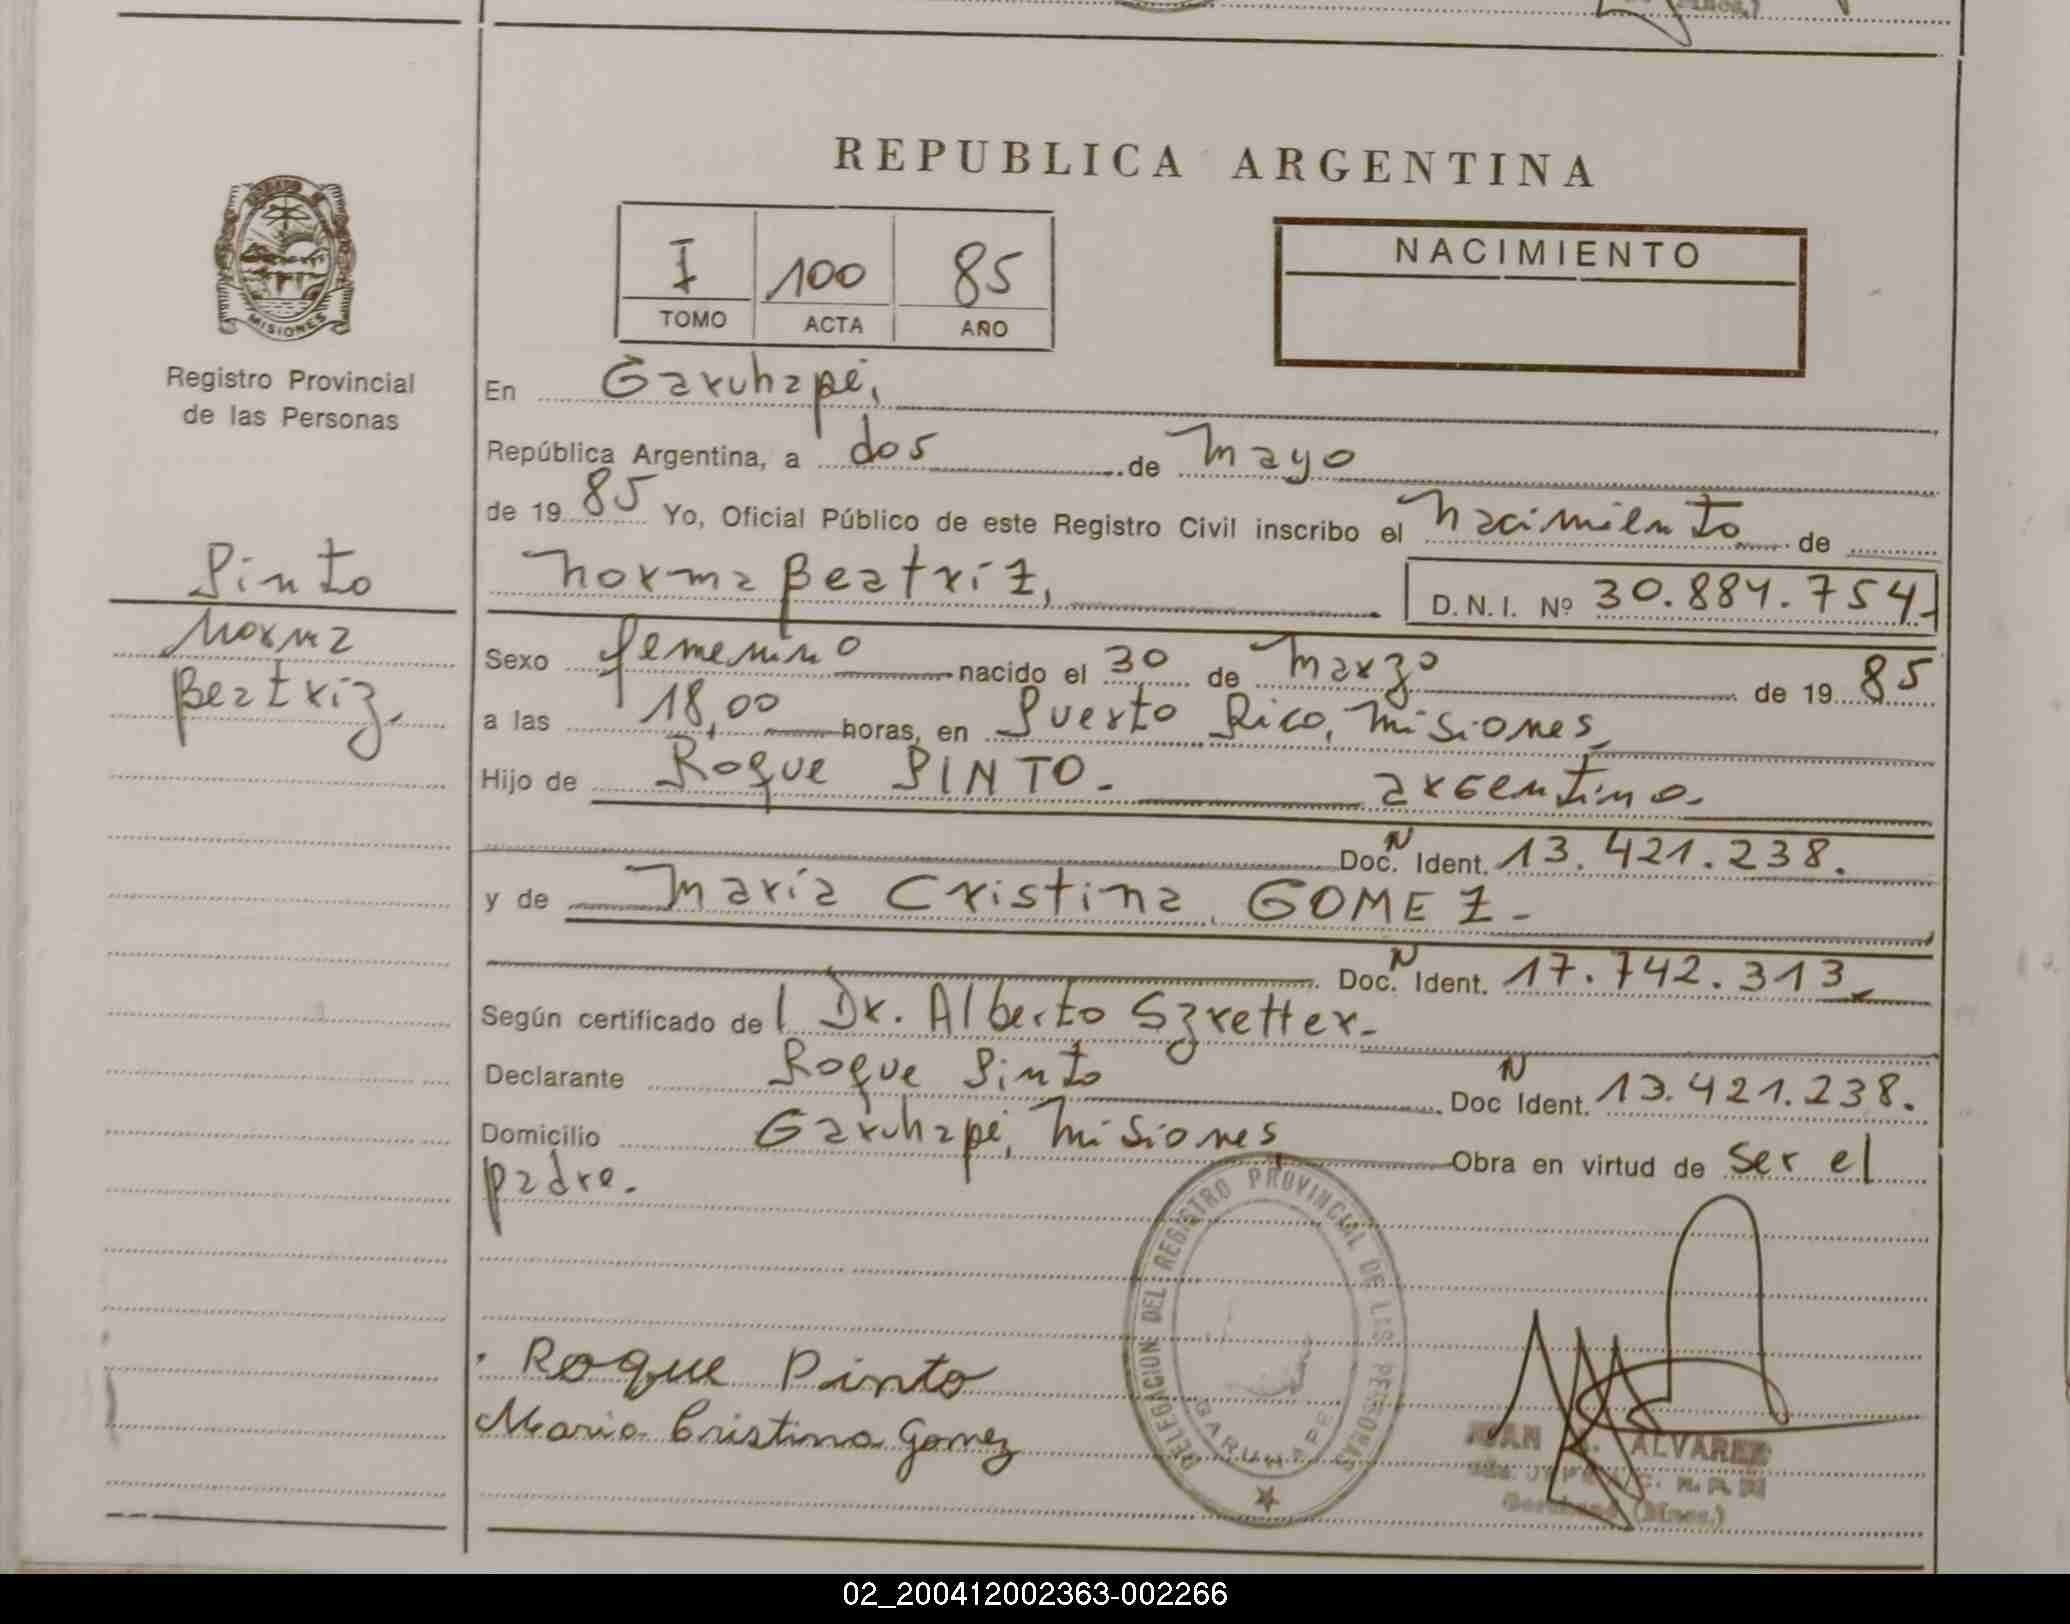 REPUBLICA ARGENTINA
I 100 85
TOMO ACTA AÑO
NACIMIENTO
MISIONES
Registro Provincial
de las Personas
Pinto
Norma
Beatriz.
En Garuhapé,
República Argentina, a dos de mayo
de 19 85 Yo, Oficial Público de este Registro Civil inscribo el nacimiento de
Norma Beatriz, D.N.I. Nº 30.884.754.
Sexo femenino nacido el 30 de marzo de 19 85
a las 18,00 horas, en Puerto Rico, Misiones,
Hijo de Roque PINTO. argentino.
Doc. N Ident. 13.421.238.
y de María Cristina GOMEZ-
Doc. N Ident. 17.742.313.
Según certificado del Dr. Alberto Szretter-
Declarante Roque Pinto Doc N Ident. 13.421.238.
Domicilio Garuhapé, Misiones, Obra en virtud de ser el
padre.
DELEGACION DEL REGISTRO PROVINCIAL DE LAS PERSONAS
GARUHAPE
Roque Pinto
Maria Cristina Gomez
JUAN ALVAREZ
(Mnes.)
02_200412002363-002266